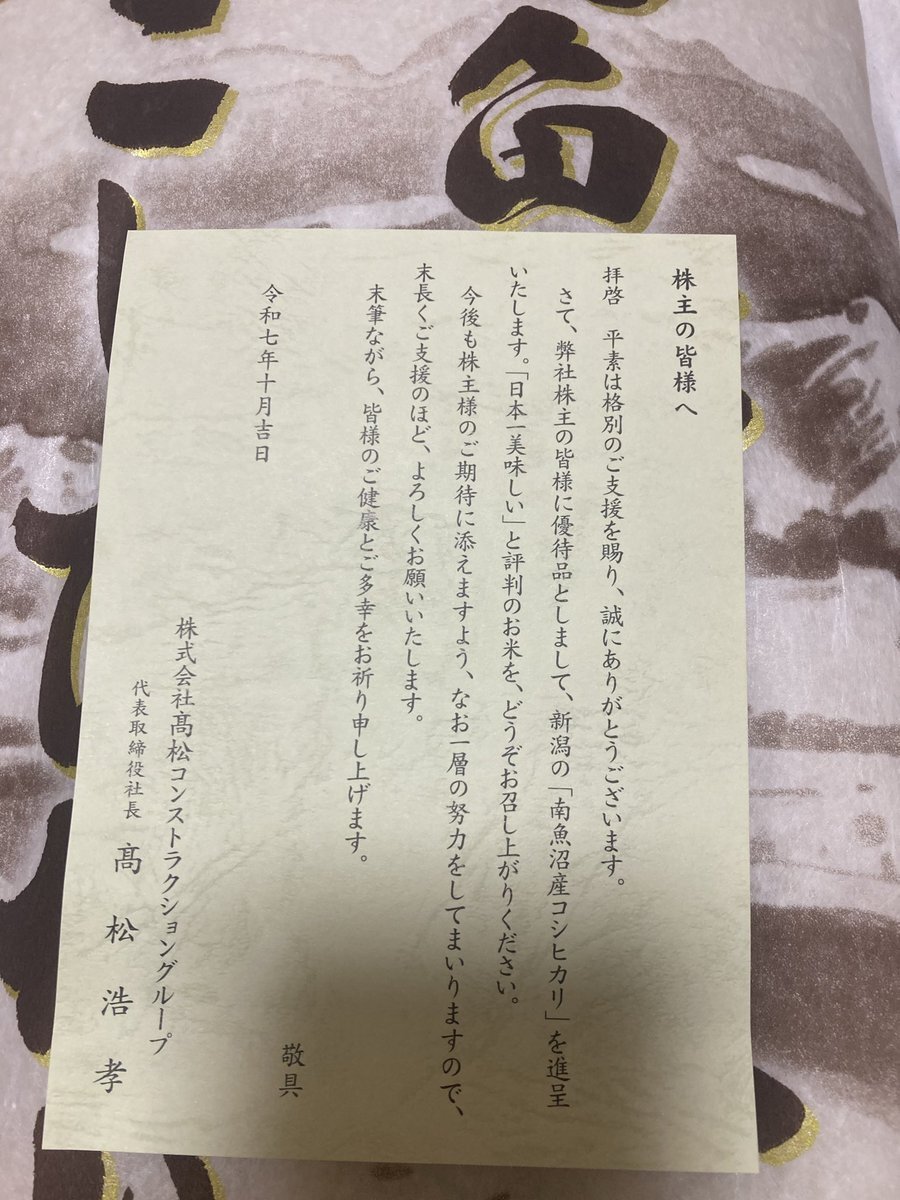 株主の皆様へ
拝啓　平素は格別のご支援を賜り、誠にありがとうございます。
さて、弊社株主の皆様に優待品としまして、新潟の「南魚沼産コシヒカリ」を進呈
いたします。「日本一美味しい」と評判のお米を、どうぞお召し上がりください。
今後も株主様のご期待に添えますよう、なお一層の努力をしてまいりますので、
末長くご支援のほど、よろしくお願いいたします。
末筆ながら、皆様のご健康とご多幸をお祈り申し上げます。
敬具
令和七年十月吉日
株式会社髙松コンストラクショングループ
代表取締役社長　髙松浩孝